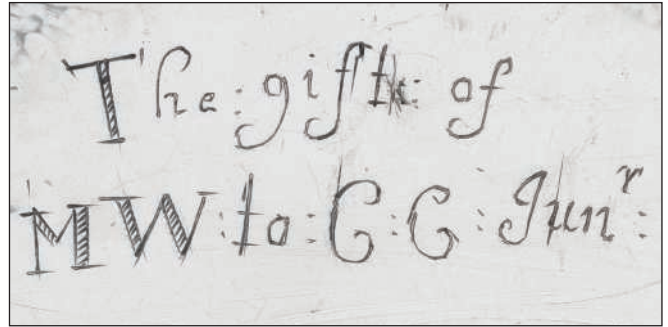 The : gift : of
MW : to : C : C : Junʳ :